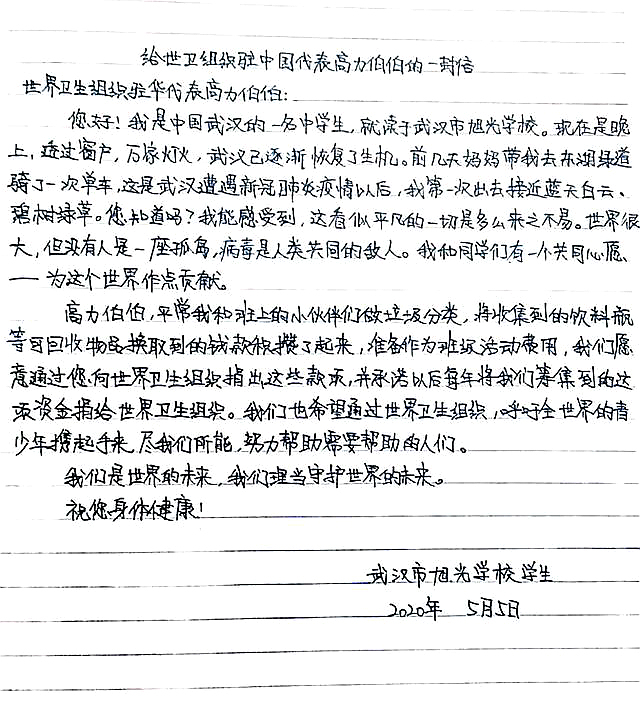 给世卫组织驻中国代表高力伯伯的一封信
世界卫生组织驻华代表高力伯伯：
您好！我是中国武汉的一名中学生，就读于武汉市旭光学校。现在是晚
上，透过窗户，万家灯火，武汉已逐渐恢复了生机。前几天妈妈带我去东湖绿道
骑了一次单车，这是武汉遭遇新冠肺炎疫情以后，我第一次出去接近蓝天白云、
碧树绿草。您知道吗？我能感受到，这看似平凡的一切是多么来之不易。世界很
大，但没有人是一座孤岛，病毒是人类共同的敌人。我和同学们有一个共同心愿
——为这个世界作点贡献。
高力伯伯，平常我和班上的小伙伴们做垃圾分类，将收集到的饮料瓶
等可回收物品换取到的钱款积攒了起来，准备作为班级活动费用，我们愿
意通过您向世界卫生组织捐出这些款项，并承诺以后每年将我们筹集到的这
项资金捐给世界卫生组织。我们也希望通过世界卫生组织，呼吁全世界的青
少年携起手来，尽我们所能，努力帮助需要帮助的人们。
我们是世界的未来，我们理当守护世界的未来。
祝您身体健康！
武汉市旭光学校学生
2020年 5月5日